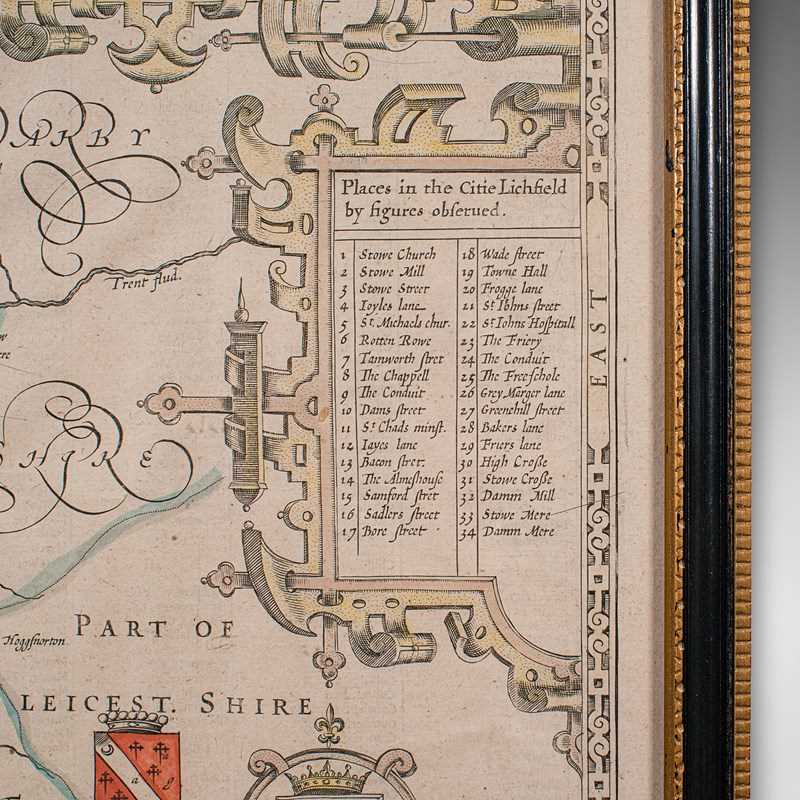 DARBY
Trent flud.
Places in the Citie Lichfield
by figures obſerued.
1 Stowe Church
2 Stowe Mill
3 Stowe Street
4 Ioyles lane
5 St. Michaels chur.
6 Rotten Rowe
7 Tamworth ſtret
8 The Chappell
9 The Conduit
10 Dams ſtreet
11 St. Chads minſt.
12 Iayes lane
13 Bacon ſtret.
14 The Almeſhouſe
15 Samford ſtret
16 Sadlers ſtreet
17 Bore ſtreet
18 Wade ſtreet
19 Towne Hall
20 Frogge lane
21 St Iohns ſtreet
22 St Iohns Hoſpitall
23 The Friery
24 The Conduit
25 The Freeſchole
26 Grey Marger lane
27 Greenehill ſtreet
28 Bakers lane
29 Friers lane
30 High Croße
31 Stowe Croße
32 Damm Mill
33 Stowe Mere
34 Damm Mere
EAST
SHIRE
Hoggſnorton
PART OF
LEICEST. SHIRE